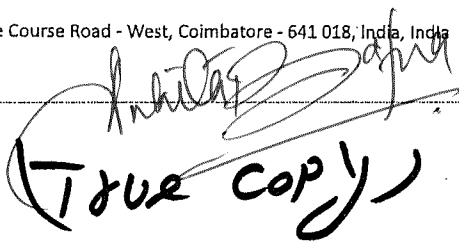 e Course Road - West, Coimbatore - 641 018, India, India
(True copy)